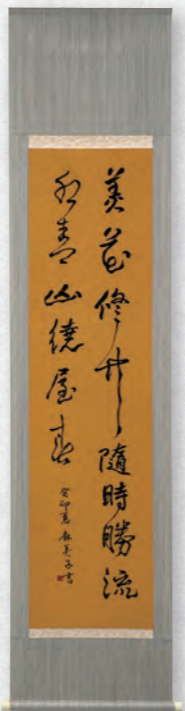 美花修竹隨時勝流
水青山繞屋春
癸卯夏 美子書